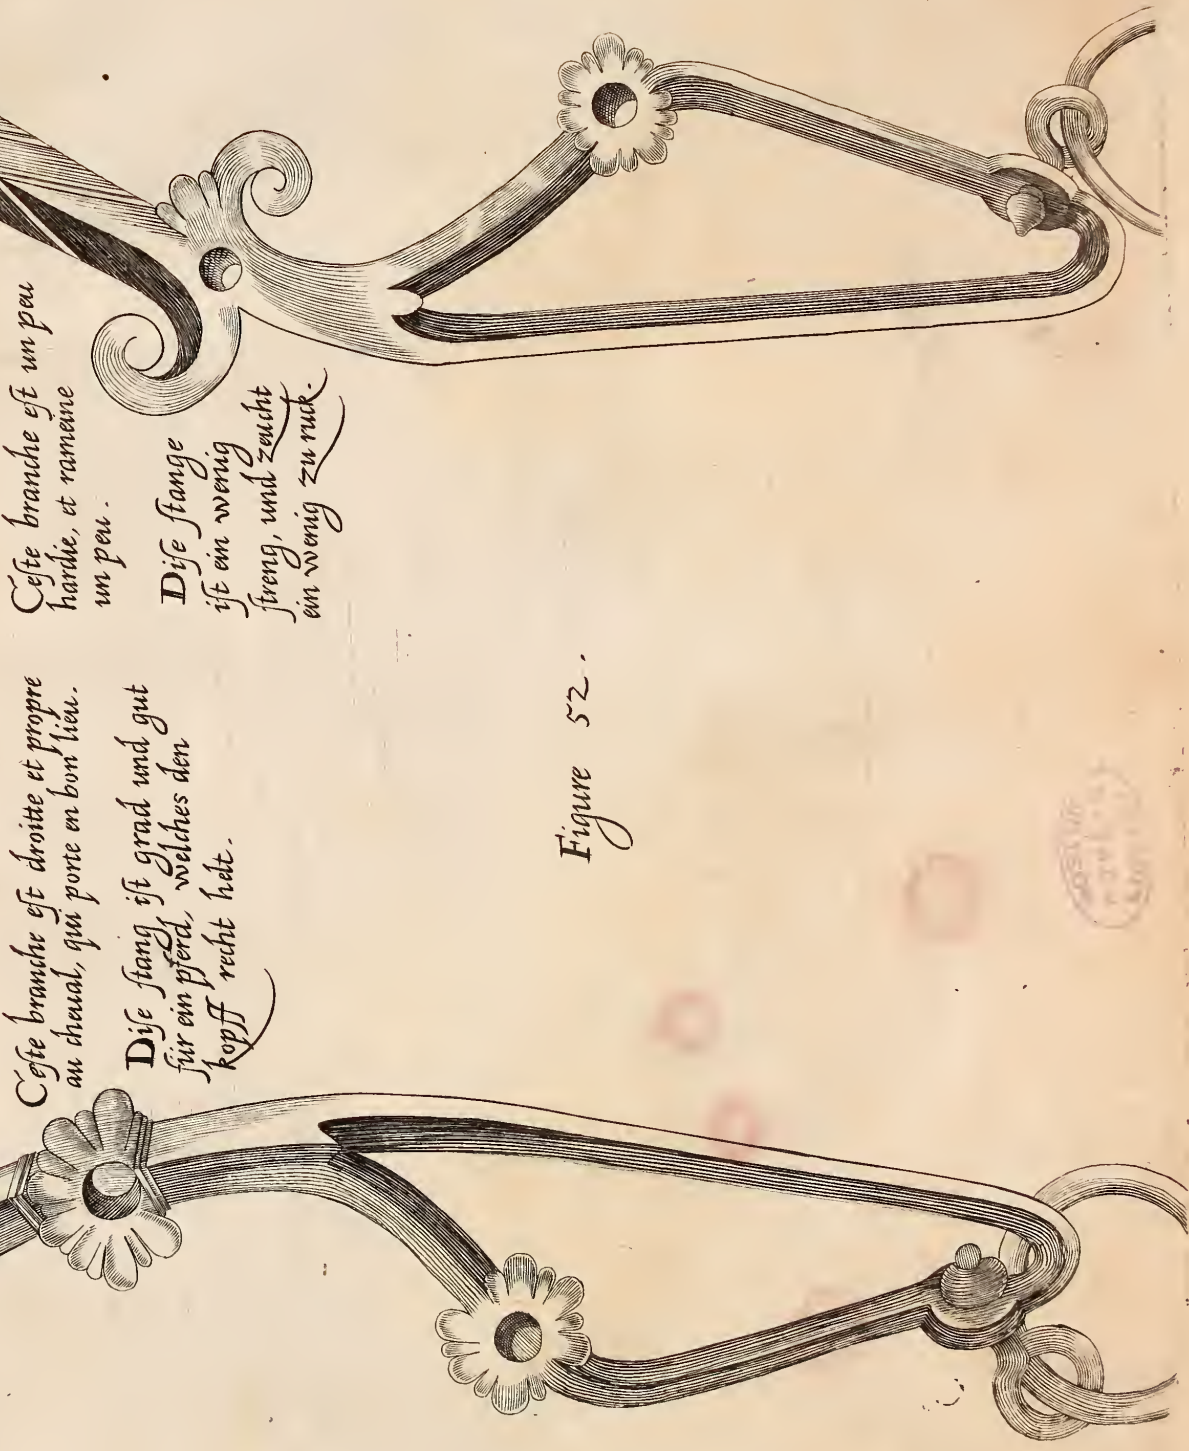 Ceſte branche eſt droitte et propre
au cheual, qui porte en bon lieu.
Diſe ſtang iſt grad und gut
für ein pferd, welches den
kopff recht helt.
Ceſte branche eſt un peu
hardie, et rameine
un peu.
Diſe ſtange
iſt ein wenig
ſtreng, und zeucht
ein wenig zu ruck.
Figure 52.